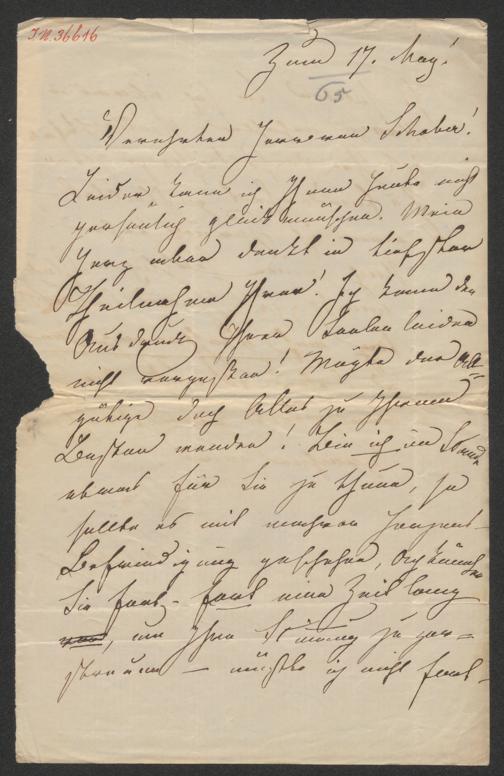 I.N. 36616
Zum 17. May!
65
Verehrter Herr von Schober!
Leider kann ich Ihnen heute nicht
persönlich glückwünschen. Mein
Herz aber denkt in tiefster
Theilnahme Ihrer! Ich kann den
Ausdruck Ihrer Seelenleiden
nicht vergessen! Möchte der All=
gütige doch Alles zu Ihrem
Besten wenden! Bin ich im Stande
etwas für Sie zu thun, so
sollte es mit wahrer Herzens-
Befriedigung geschehen, O könnten
Sie fort - fort eine Zeit lang
, um Ihre Stimmung zu zer=
streuen — müßte ich nicht fort-